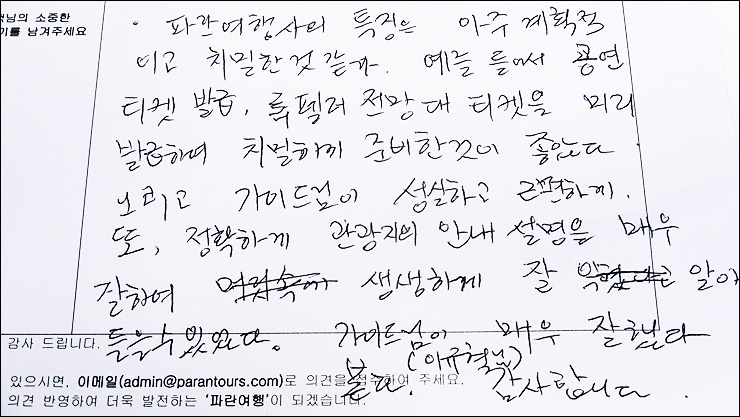 객님의 소중한
기를 남겨주세요
· 파란여행사의 특징은 아주 계획적
이고 치밀한것 같다. 예를 들어서 공연
티켓 발급, 록펠러 전망대 티켓을 미리
발급하여 치밀하게 준비한것이 좋았다.
그리고 가이드님이 성실하고 근면하게.
또, 정확하게 관광지의 안내 설명을 매우
잘하여 생생하게 잘 알아
감사 드립니다. 들을수 있었다. 가이드님이 매우 잘했다
(이규혁님)
있으시면, 이메일(admin@parantours.com)로 의견을 접수하여 주세요.
본다. 감사합니다.
의견 반영하여 더욱 발전하는 '파란여행'이 되겠습니다.